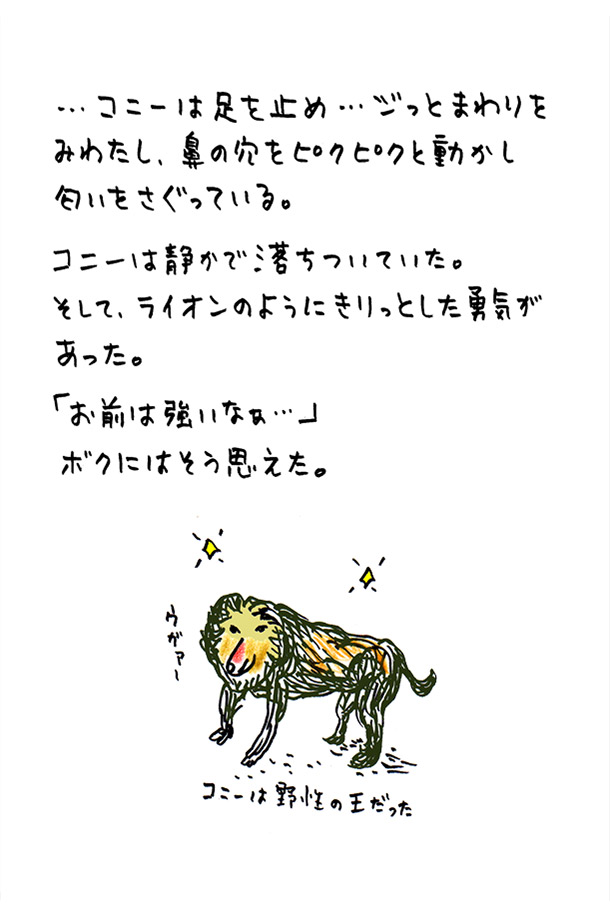 …コニーは足を止め…ジっとまわりを
みわたし、鼻の穴をピクピクと動かし
匂いをさぐっている。
コニーは静かで落ちついていた。
そして、ライオンのようにきりっとした勇気が
あった。
「お前は強いなぁ…」
ボクにはそう思えた。
ウガァー
コニーは野性の王だった